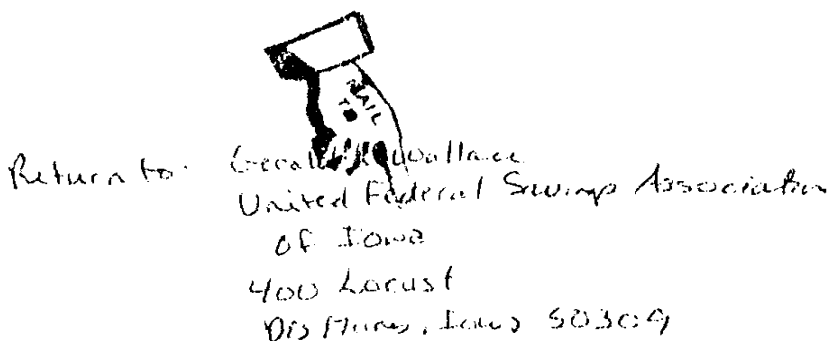 MAIL
TO
Return to: Gerald Wallace
United Federal Savings Association
of Iowa
400 Locust
Des Moines, Iowa 50309